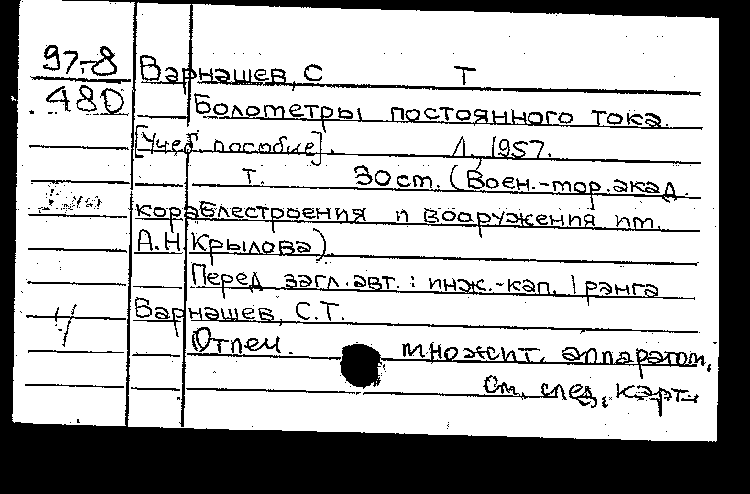 97-8
480
Варнашев, С Т
Болометры постоянного тока.
[Учеб. пособие]. Л., 1957.
т. 30 ст. (Воен.-мор. акад.
кораблестроения и вооружения им.
А.Н. Крылова)
Перед загл. авт.: инж.-кап. I ранга
Варнашев, С.Т.
Отпеч. множит. аппаратом.
См. след. карт.